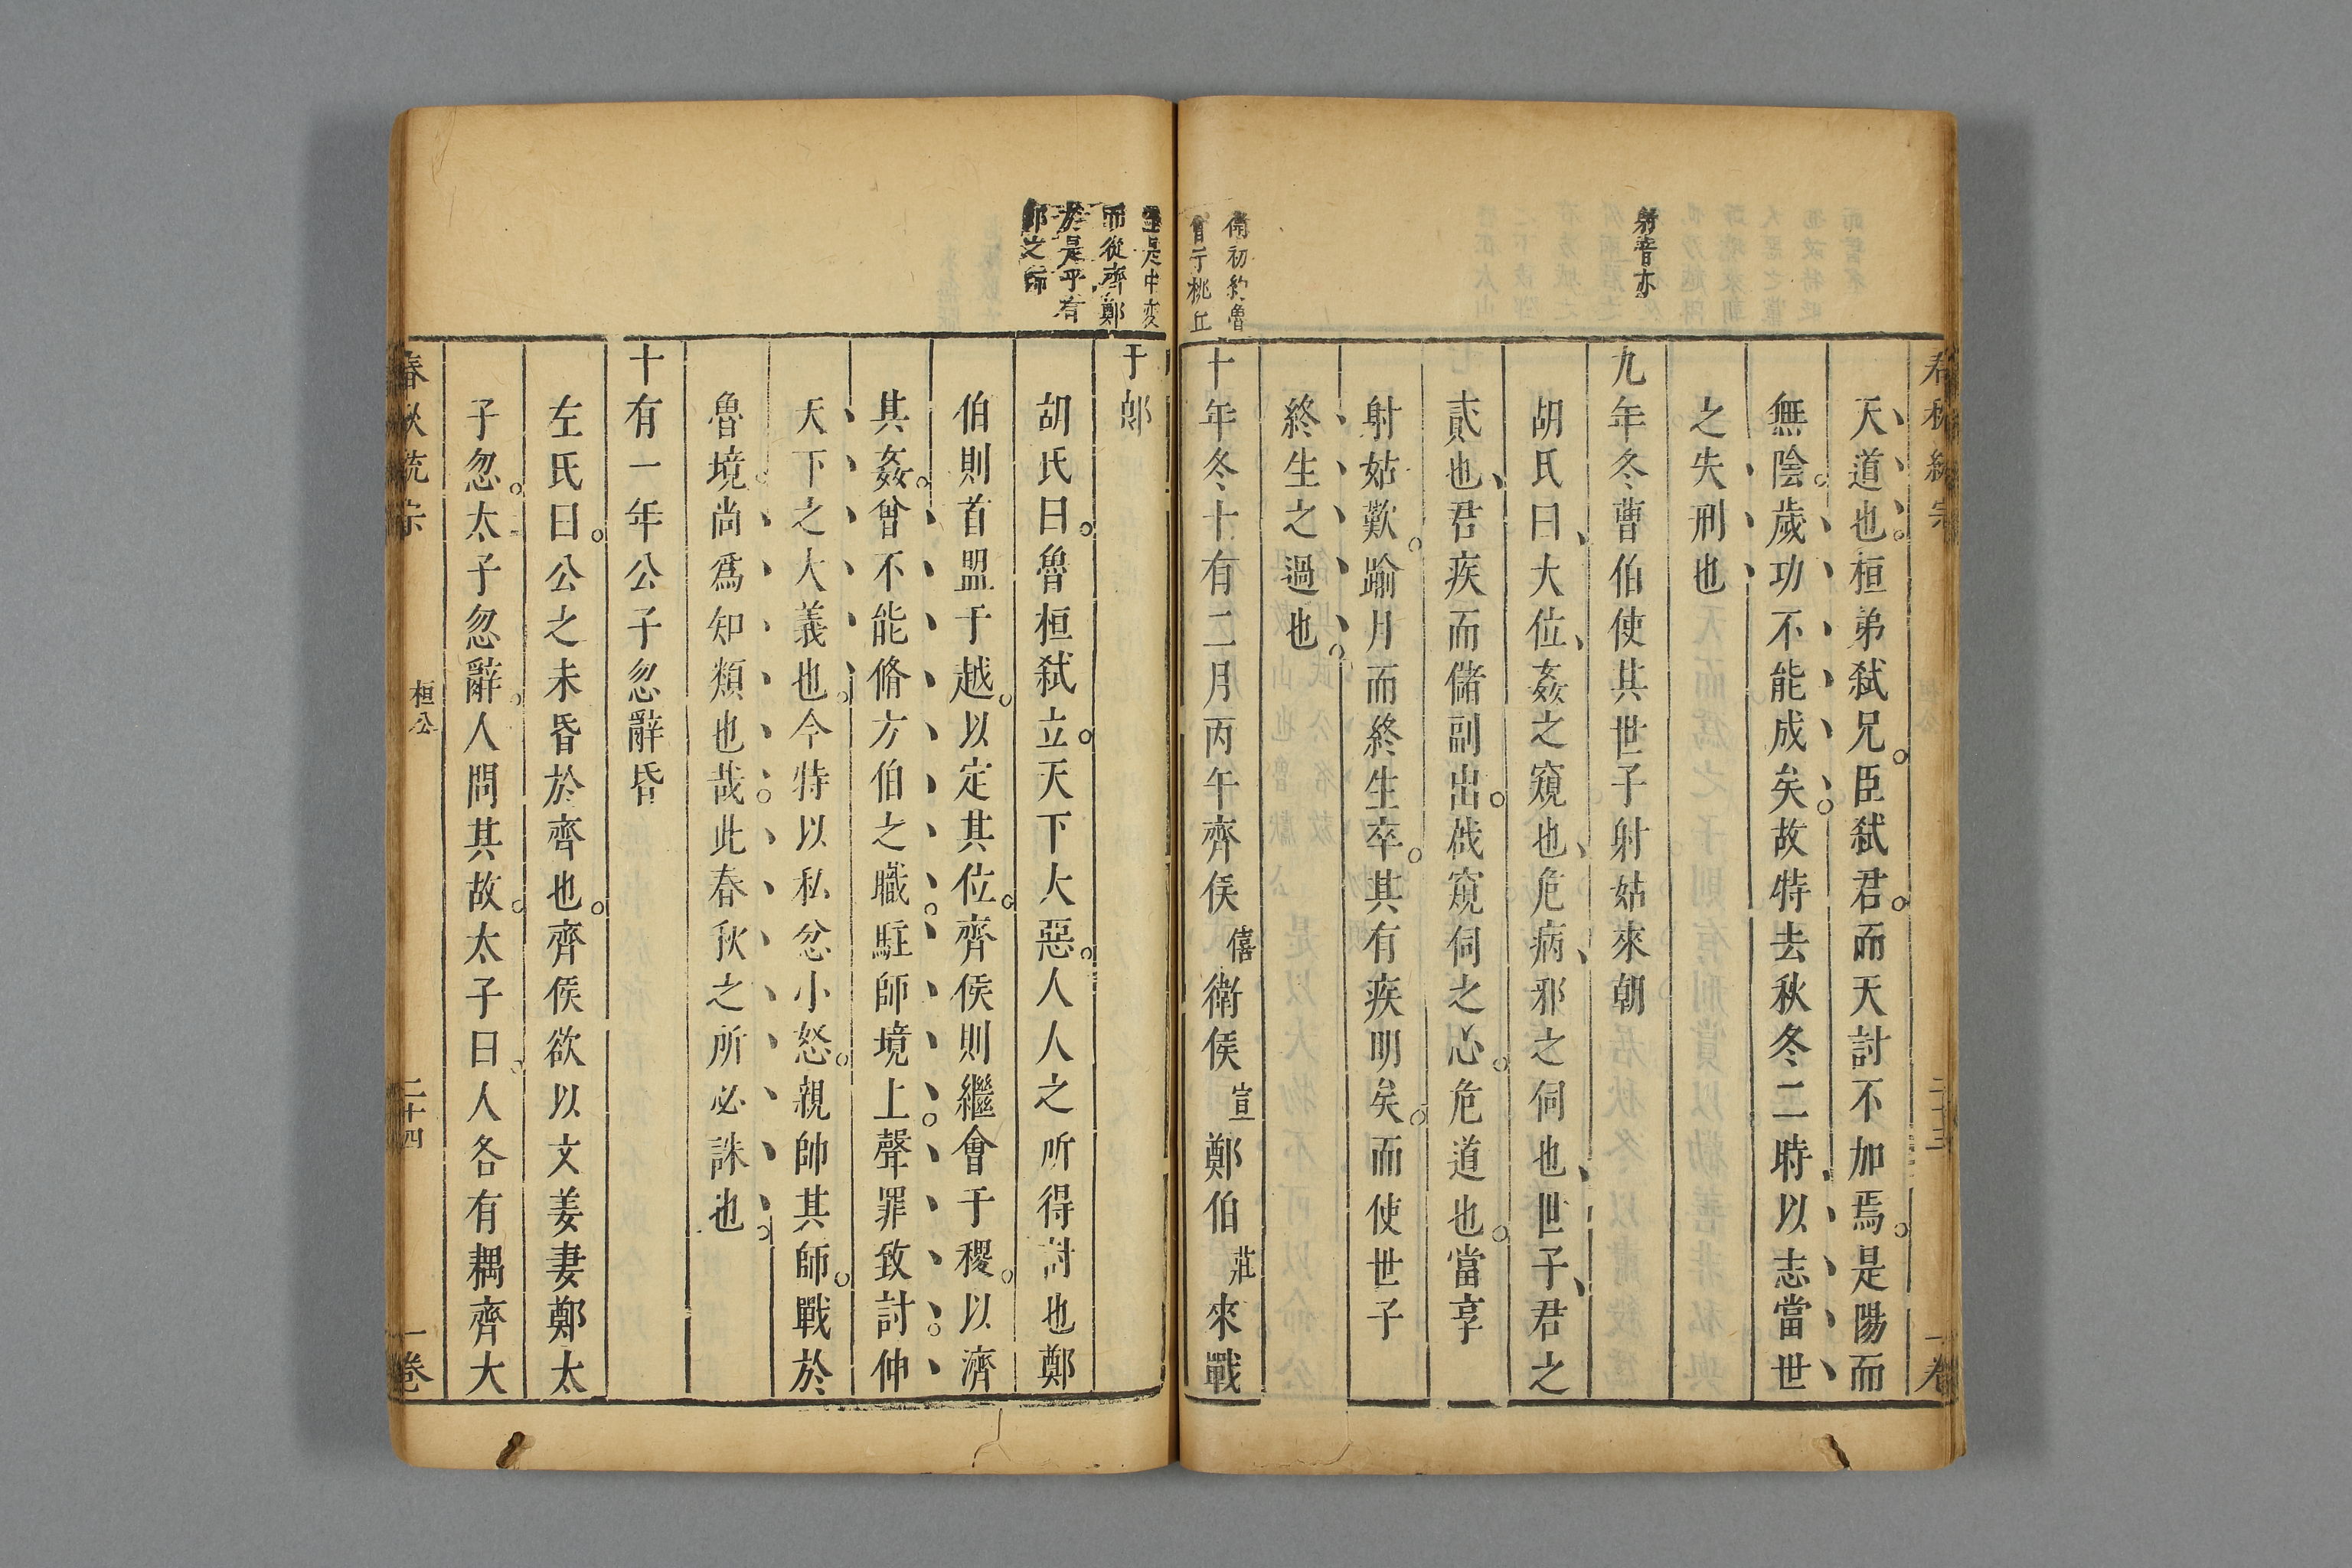 春秋統宗
二十三
一卷
天道也桓弟弑兄臣弑君而天討不加焉是陽而
無陰歲功不能成矣故特去秋冬二時以志當世
之失刑也
射音亦
九年冬曹伯使其世子射姑來朝
胡氏曰大位姦之窺也危病邪之伺也世子君之
貳也君疾而儲副出啟窺伺之心危道也當享
射姑歎踰月而終生卒其有疾明矣而使世子
終生之過也
衛初約魯
會于桃丘
十年冬十有二月丙午齊侯僖衛侯宣鄭伯莊來戰
至是中变
而從齊鄭
於是乎有
郎之師
于郎
胡氏曰魯桓弑立天下大惡人人之所得討也鄭
伯則首盟于越以定其位齊侯則繼會于稷以濟
其姦曾不能脩方伯之職駐師境上聲罪致討伸
天下之大義也今特以私忿小怒親帥其師戰於
魯境尚爲知類也哉此春秋之所必誅也
十有一年公子忽辭昏
左氏曰公之未昏於齊也齊侯欲以文姜妻鄭太
子忽太子忽辭人問其故太子曰人各有耦齊大
春秋統宗
桓公
二十四
一卷